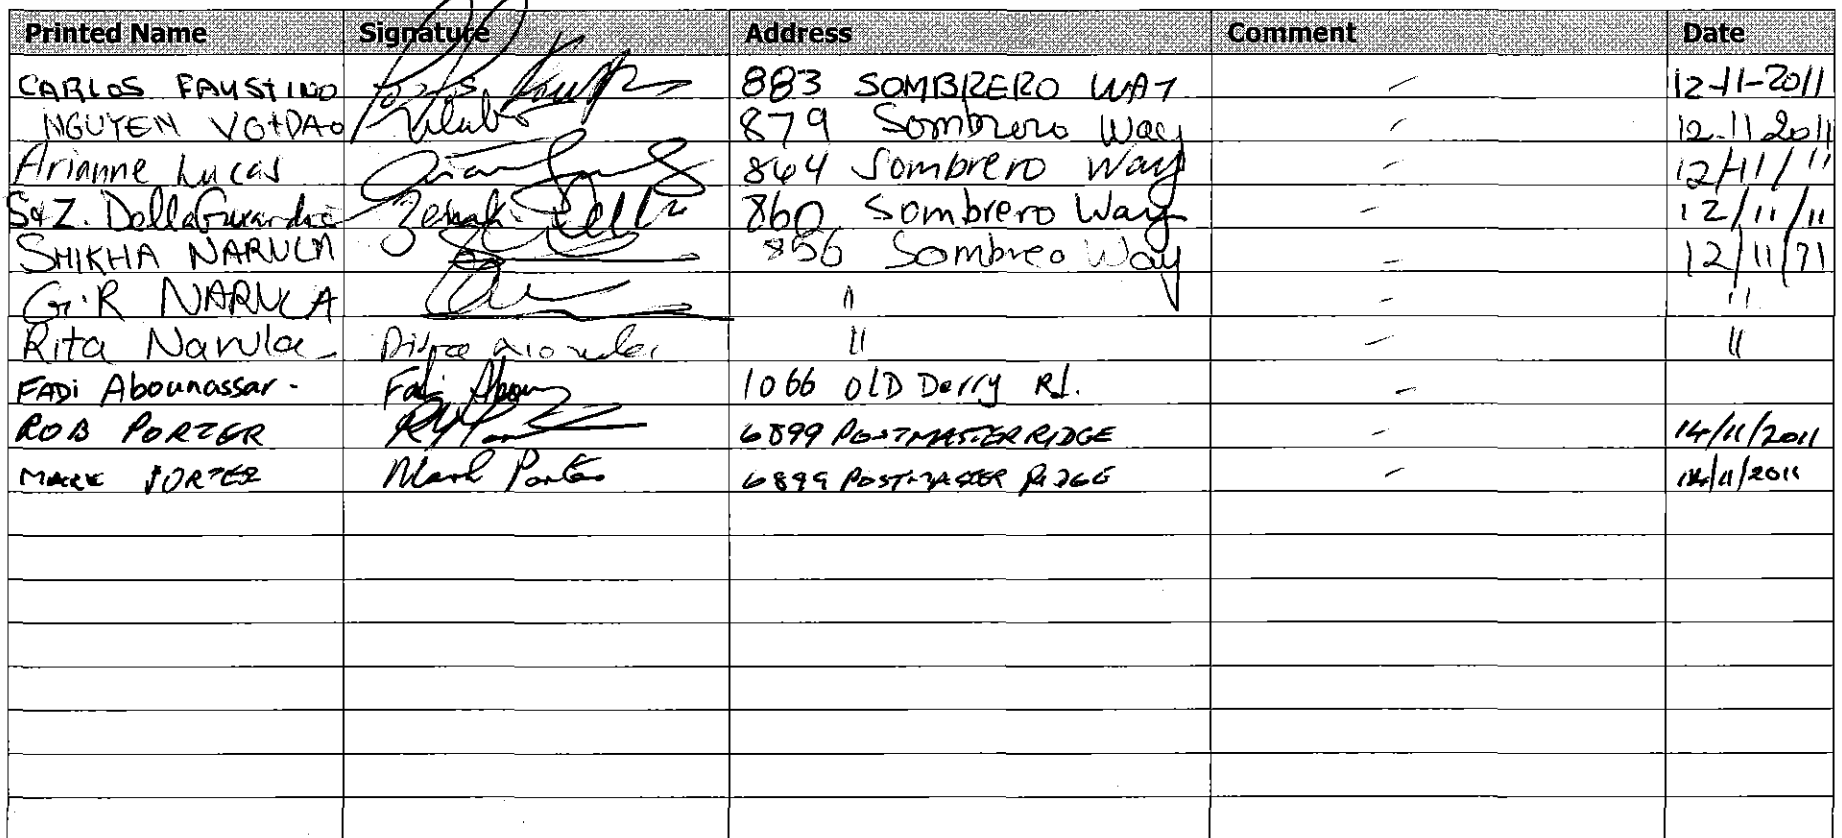 Printed Name Signature Address Comment Date
CARLOS FAUSTINO 883 SOMBRERO WAY - 12-11-2011
NGUYEN 879 Sombrero Way - 12-11 2011
Arianne Lucas 864 Sombrero Way - 12/11/11
S&Z. DellaGuardia 860 Sombrero Way - 12/11/11
SHIKHA NARULA 856 Sombreo Way - 12/11/11
G.R NARULA " - "
Rita Narula " - "
FADi Abounassar - Fadi Aboun 1066 OLD Derry Rd. -
ROB PORTER 6899 POSTMASTER RIDGE - 14/11/2011
MARK PORTER Mark Porter 6899 POSTMASTER RIDGE - 14/11/2011